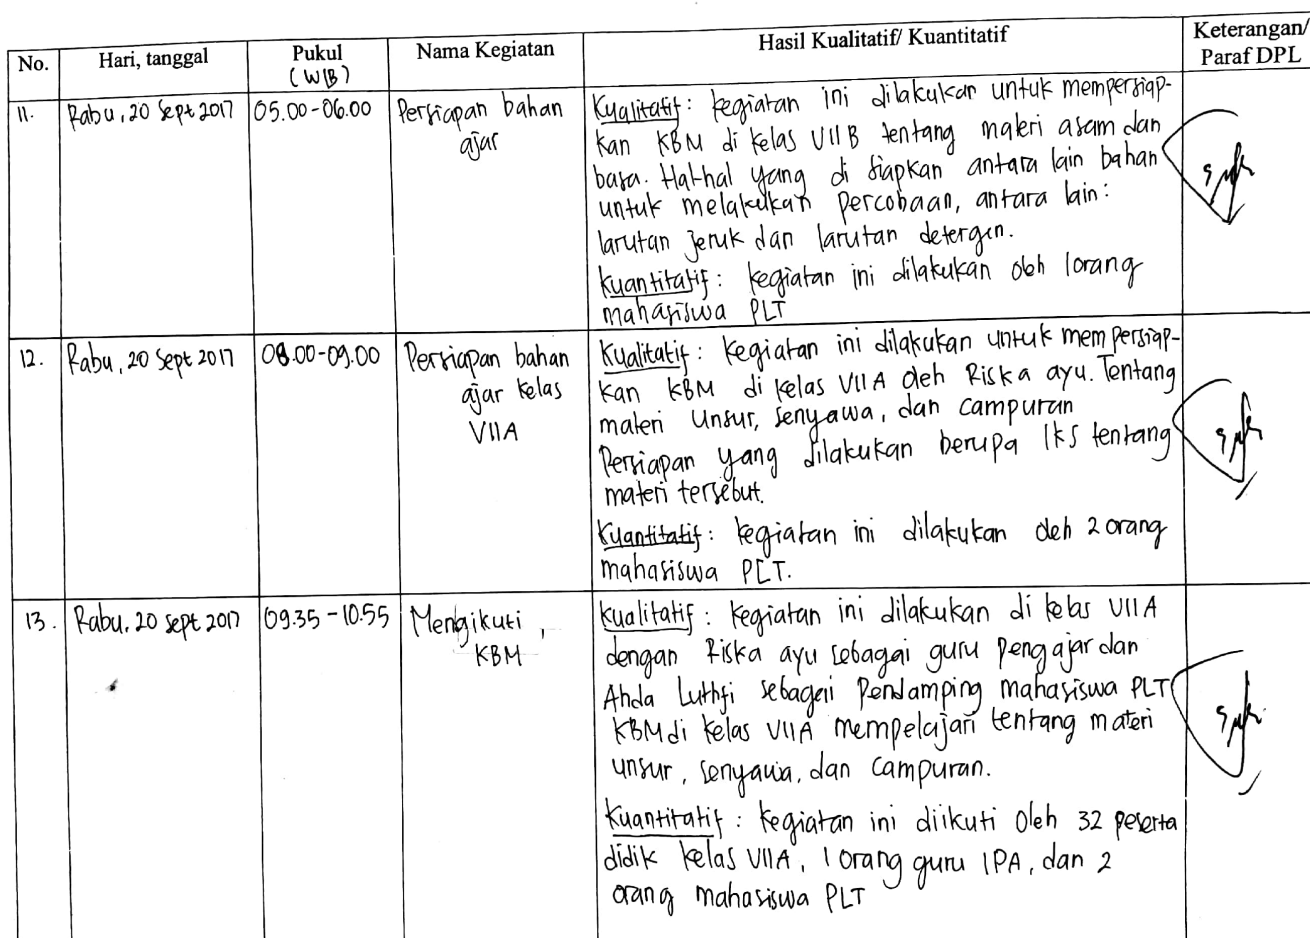 No. Hari, tanggal Pukul (WIB) Nama Kegiatan Hasil Kualitatif/ Kuantitatif Keterangan/ Paraf DPL
11. Rabu, 20 Sept 2017 05.00-06.00 Persiapan bahan ajar
Kualitatif: kegiatan ini dilakukan untuk mempersiap-
kan KBM di kelas VIIB tentang materi asam dan
basa. Hal-hal yang di siapkan antara lain bahan
untuk melakukan percobaan, antara lain:
larutan jeruk dan larutan detergen.
Kuantitatif: kegiatan ini dilakukan oleh 1 orang
mahasiswa PLT
12. Rabu, 20 Sept 2017 08.00-09.00 Persiapan bahan ajar kelas VIIA
Kualitatif: kegiatan ini dilakukan untuk mempersiap-
kan KBM di kelas VIIA oleh Riska ayu. Tentang
materi Unsur, senyawa, dan campuran
Persiapan yang dilakukan berupa lks tentang
materi tersebut.
Kuantitatif: kegiatan ini dilakukan oleh 2 orang
mahasiswa PLT.
13. Rabu, 20 sept 2017 09.35-10.55 Mengikuti KBM
Kualitatif: kegiatan ini dilakukan di kelas VIIA
dengan Riska ayu sebagai guru pengajar dan
Ahda Luthfi sebagai pendamping mahasiswa PLT
KBM di kelas VIIA mempelajari tentang materi
unsur, senyawa, dan campuran.
Kuantitatif: kegiatan ini diikuti oleh 32 peserta
didik kelas VIIA, 1 orang guru IPA, dan 2
orang mahasiswa PLT